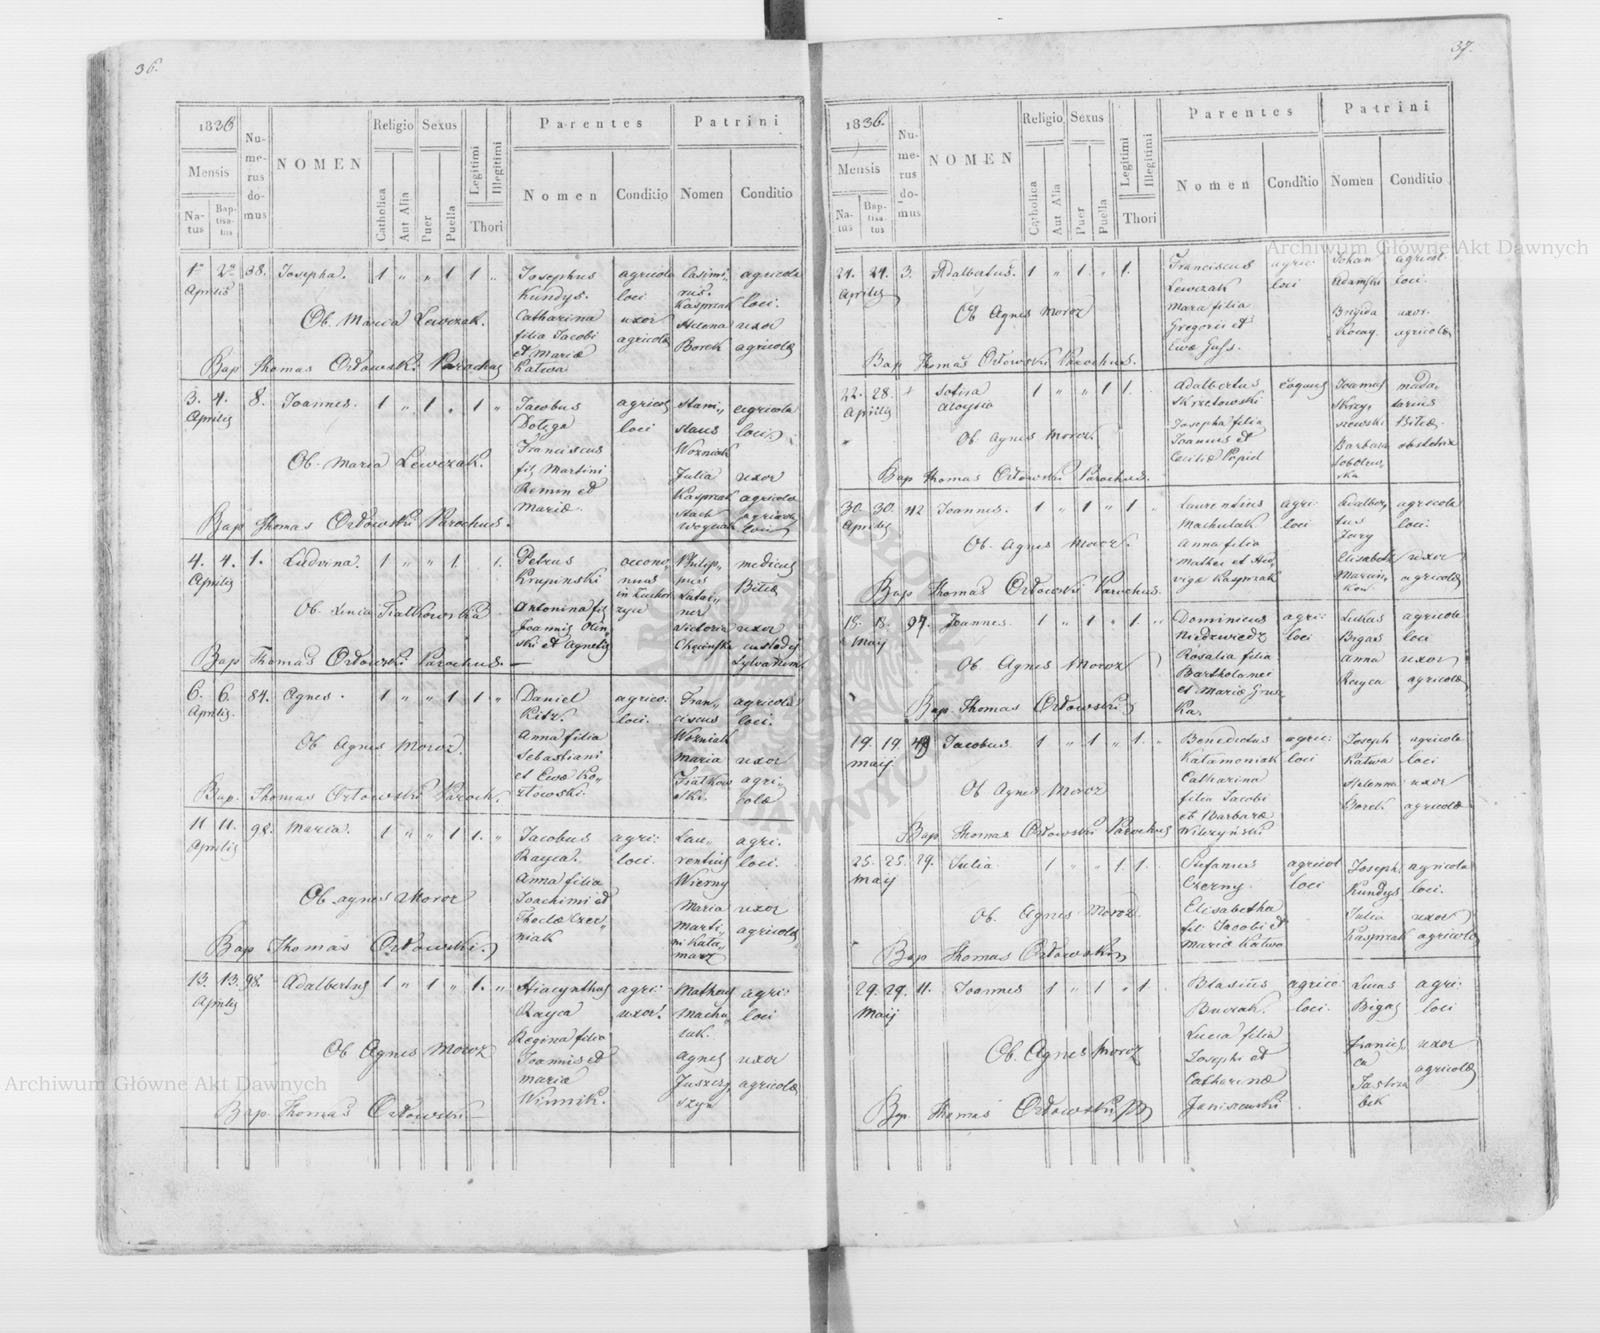 36.
1836
Mensis
Na-
tus
Bap-
tisa-
tus
Nu-
me-
rus
do-
mus
NOMEN
Religio
Catholica
Aut Alia
Sexus
Puer
Puella
Legitimi
Illegitimi
Thori
Parentes
Nomen
Conditio
Patrini
Nomen
Conditio
1a 2a 38. Josepha. 1 " " 1 1 "
Aprilis
Josephus
Kundys.
Catharina
filia Jacobi
et Mariæ
Katwa
agricola
loci
uxor
agricolæ
Casimi,,
rus.
Kasprzak
Helena
Borek
agricola
loci.
uxor
agricolæ
Ob. Maria Lewczak.
Bap Thomas Orłowski Parochus
3. 4. 8. Joannes. 1 " 1 " 1 "
Aprilis
Jacobus
Dołęga
Franciscus
fil. Martini
Remin et
Mariæ.
agricola
loci
Stani,,
slaus
Wozniak
Julia
Kasprzak
agricola
loci.
uxor
agricola
loci
Ob. Maria Lewczak.
Bap Thomas Orłowski Parochus.
4. 4. 1. Ludvina. 1 " " 1 1.
Aprilis
Petrus
Krupinski
Antonina fil
Joannis Olin,,
ski et Agnetis
oecono,,
mus
Philip,,
pus
Victoria
medicus
Bitæ
uxor
custodis
Sylvarum
Ob. Xenia Fiałkowska
Bap Thomas Orłowski Parochus.
6. 6. 84. Agnes. 1 " " 1 1. "
Aprilis.
Daniel
Kitz.
Anna filia
Sebastiani
et Ewæ Ko,,
złowski.
agrico:
loci.
Fran,,
ciscus
Wozniak
Maria
Fiałkow
ski.
agricola
loci.
uxor
agri,,
colæ
Ob Agnes Moroz.
Bap. Thomas Orłowski Paroch.
11 11. 92. Maria. 1 " " 1 1. "
Aprilis
Jacobus
Rayca.
Anna filia
Joachimi et
Theclæ Czer,,
niak
agri:
loci.
Lau,,
rentius
Wierny
Maria
Marti,,
ni Kacz,,
marz
agri.
loci.
uxor
agricolæ
Ob. Agnes Moroz
Bap Thomas Orłowski.
13. 13. 98. Adalbertus 1 " 1 " 1. "
Aprilis
Hiacynthus
Rayca
Regina filia
Joannis et
Maria
Winnik.
agri:
uxor.
Matheus
Machu,,
lak.
Agnes
Juszczy
szyn
agri:
loci
uxor
agricolæ
Ob Agnes Moroz
Bap. Thomas Orłowski
37.
1836.
Mensis
Na-
tus
Bap-
tisa-
tus
Nu-
me-
rus
do-
mus
NOMEN
Religio
Catholica
Aut Alia
Sexus
Puer
Puella
Legitimi
Illegitimi
Thori
Parentes
Nomen
Conditio
Patrini
Nomen
Conditio
24. 24. 3. Adalbertus. 1 " 1. " 1.
Aprilis
Franciscus
Lewczak
Mara filia
Gregorii et
Ewæ Guss.
agric:
loci
Johan
Adamski
Brigida
Kocay.
agricol.
loci.
uxor.
agricolæ
Ob Agnes Moroz
Bap Thomas Orłowski Parochus.
22. 28. Sofija 1 " " 1 1.
Aprilis Aloysia
Adalbertus
Skrzetowski
Josepha filia
Joannis et
Ceciliæ Popiel
Joannes
Skrzy,,
szewski
Barbara
Sobolew,,
ska
Bitæ.
obstetrix
Ob. Agnes Moroz
Bap Thomas Orłowski Parochus.
30. 30. 112 Joannes. 1 " 1 " 1 "
Aprilis
Laurentius
Machulak
Anna filia
Mathei et Hed,,
vige Kasprzak
agri:
loci
Adalber,,
tus
Jary
Elisabeth
Marcin,,
kow.
agricola
loci.
uxor
agricolæ
Ob. Agnes Moroz.
Bap Thomas Orłowski Parochus.
18. 18. 94. Joannes. 1 " 1 " 1. "
Maij
Dominicus
Niedzwiedz
Rosalia filia
Bartholomei
et Mariæ Grus
ka.
agri:
loci
Lukas
Bigas
Anna
Rayca
agricola
loci
uxor
agricolæ
Ob Agnes Moroz
Bap. Thomas Orłowski
19. 19. 49 Jacobus. 1 " 1 " 1. "
Maij
Benedictus
Kalamoniak
Catharina
filia Jacobi
et Barbaræ
Wilczyński
agric:
loci
Joseph
Katwa
Helenna
Borek
agricola
loci
uxor
agricolæ
Ob Agnes Moroz
Bap Thomas Orłowski Parochus
25. 25. 29. Julia 1 " " 1. 1.
Maij
Stefanus
Czerny.
Elisabetha
fil: Jacobi et
Mariæ Katwa
agricol
loci
Joseph.
Kundys
Julia
Kasprzak
agricola
loci.
uxor
agricolæ
Ob. Agnes Moroz
Bap Thomas Orłowski
29. 29. 11. Joannes 1 " 1 " 1
Maij
Blasius
Buczak.
Lucia filia
Josephi et
Catharinæ
Janiszewski
agrico:
loci.
Lucas
Bigas
Francis,,
ca
Jastrzę
bek
agri:
loci
uxor
agricolæ
Ob. Agnes Moroz
Bap Thomas Orłowski
Archiwum Główne Akt Dawnych
Archiwum Główne Akt Dawnych